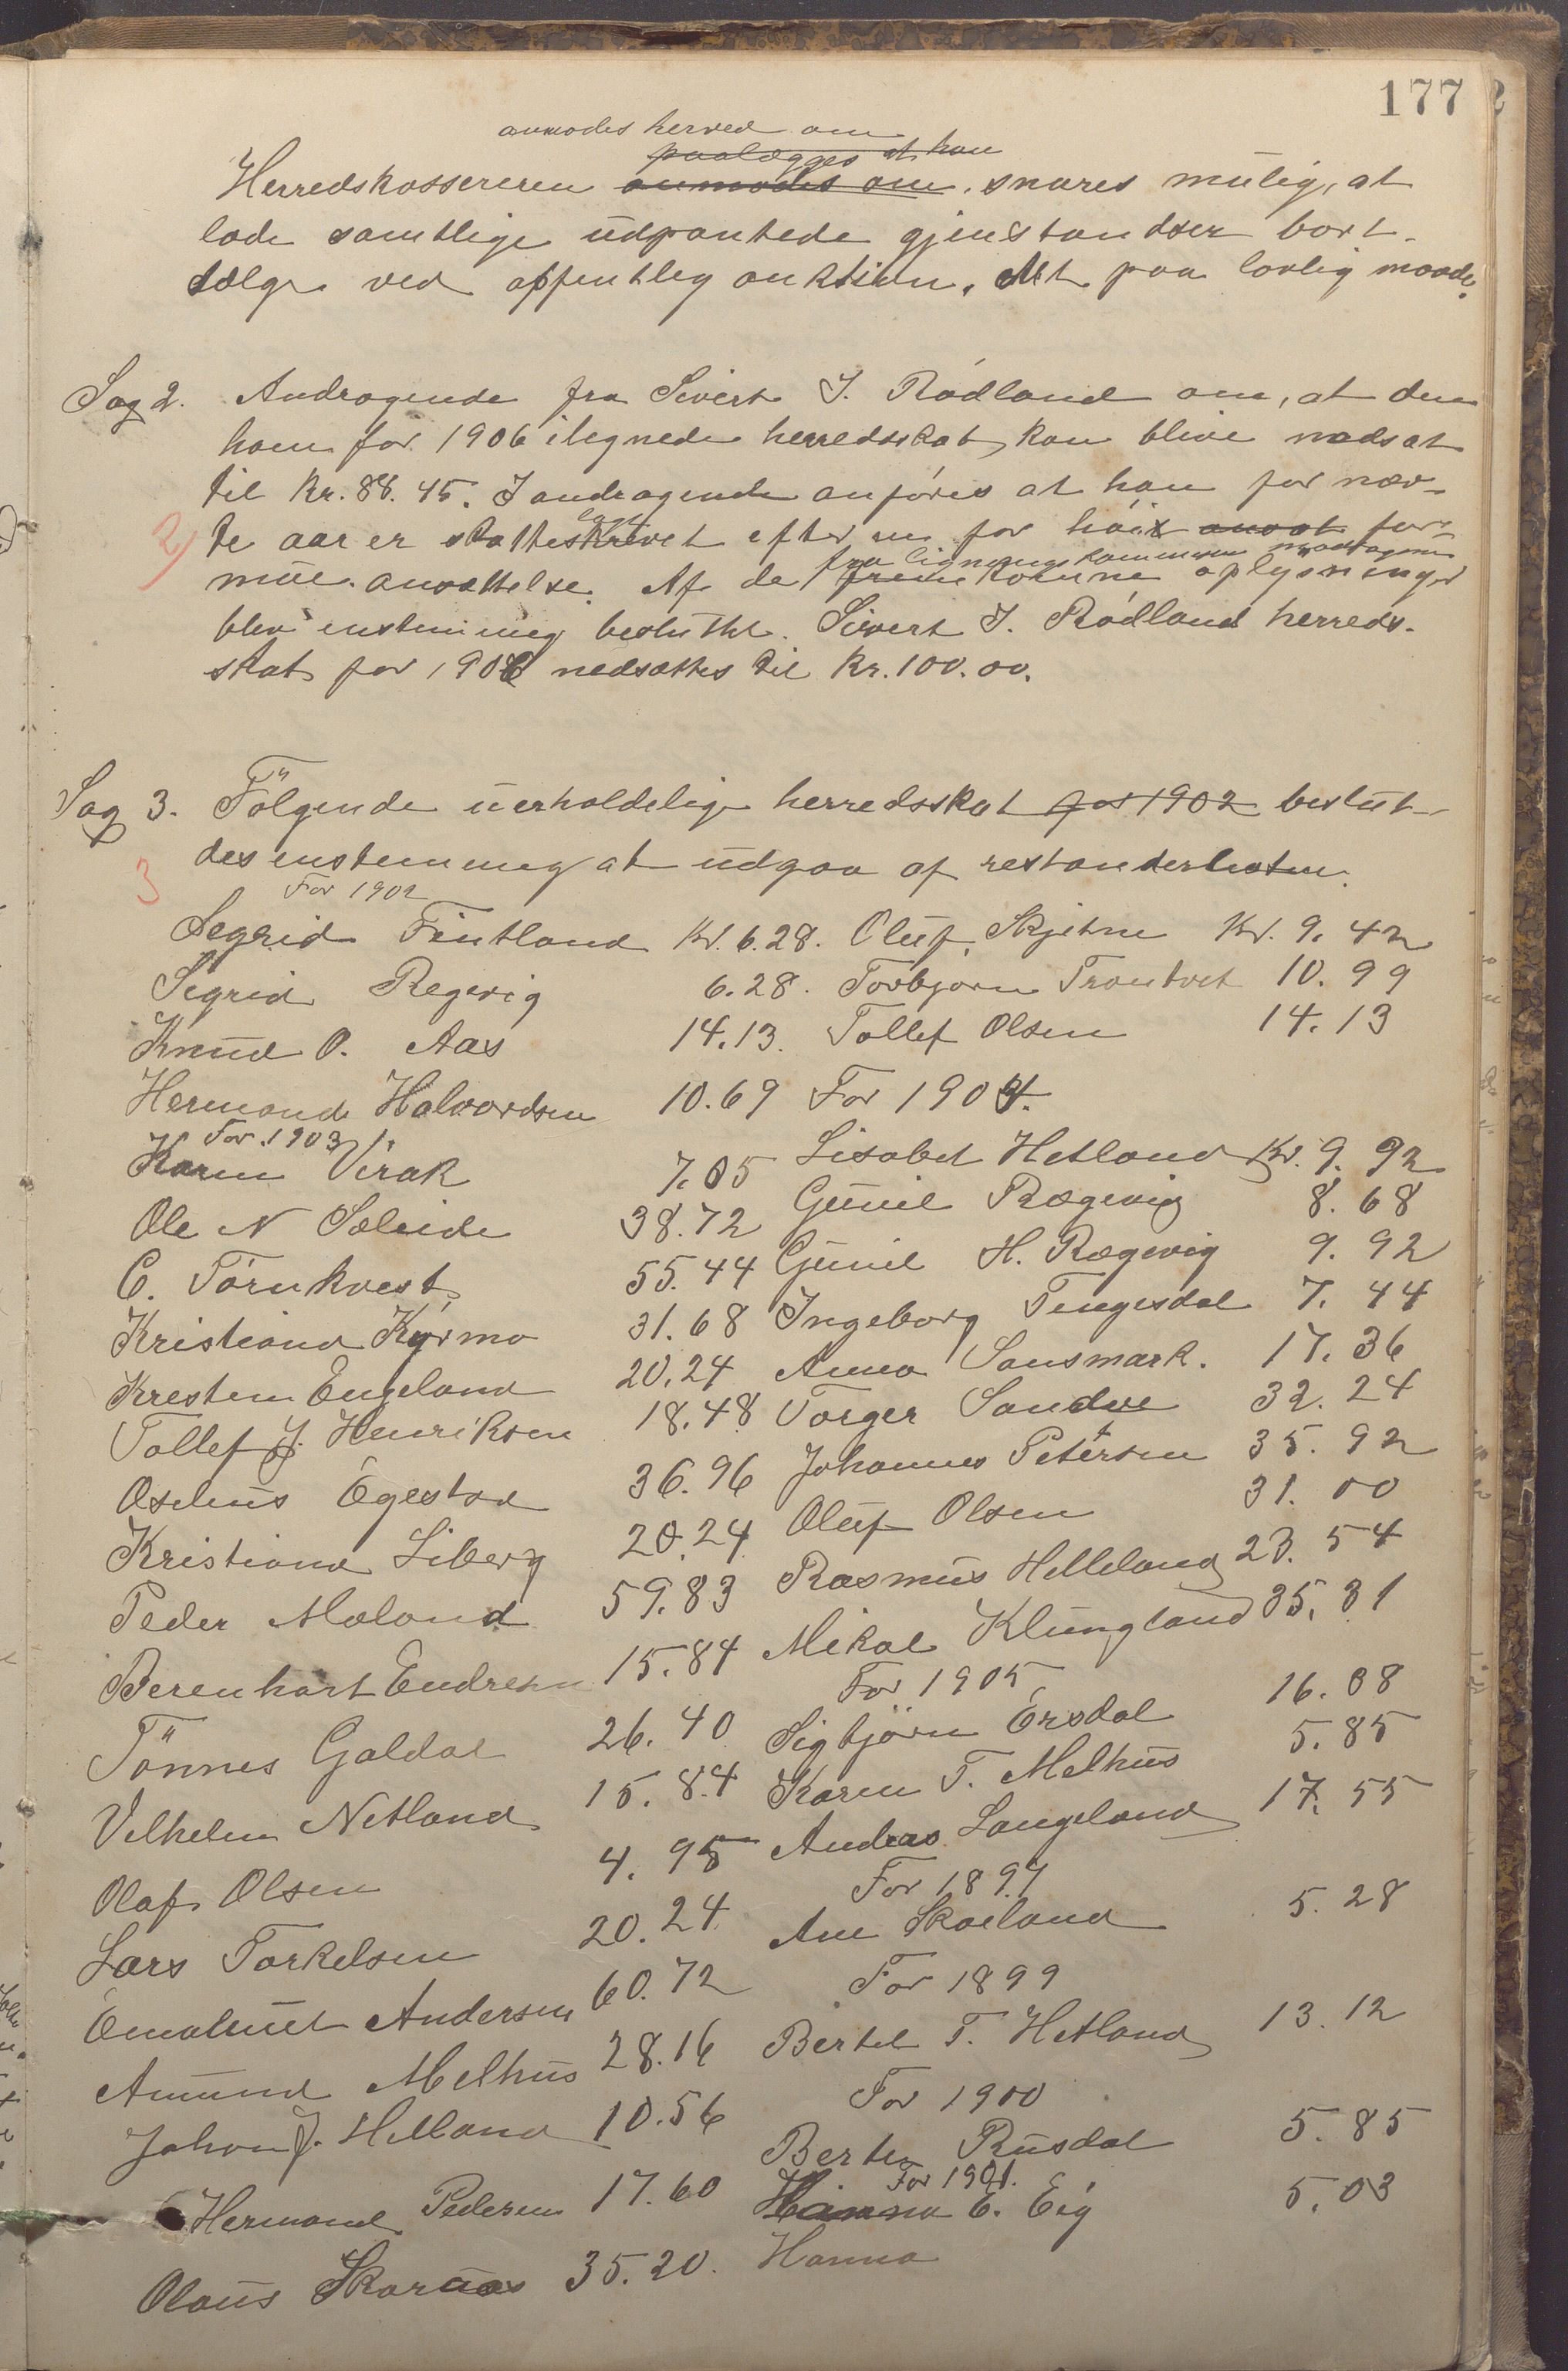 177
anmodes herved om
paalægges at han
Herredskassereren anmodes om, snares mulig, at
lade samtlige udpantede gjenstandser bort-
sælge ved offentlig auktion, alt paa lovlig maade.
Sag 2. Andragende fra Sivert J. Rödland om, at den
ham for 1906 ilignede herredsskat, kan blive nedsat
til Kr. 88.45. I andragende anföres at han for næv-
2) te aar er skatteskrevet efter en for höi ansat for-
fra ligningskommisionen modtagne
mue ansættelse. Af de fremkomne oplysninger
blev enstemmig besluttet. Sivert J. Rödland herreds-
skat for 1906 nedsættes til Kr. 100.00.
Sag 3. Fölgende uerholdelige herredsskat for 1902 beslut-
3 des enstemmig at udgaa af restanselisten.
For 1902
Segrid Fintland Kr. 6.28. Oluf Skjetne Kr. 9.42
Segrid Regevig 6.28. Torbjorn Trontvet 10.99
Knud O. Aas 14.13. Tollef Olsen 14.13
Hermand Halvordsen 10.69 For 1904.
For 1903
Karen Virak 7.05 Lisabet Hetland Kr. 9.92
Ole N Sæleide 38.72 Gunil Rægevig 8.68
C. Törnkvest 55.44 Gunil H. Rægevig 9.92
Kristiand Kyrmo 31.68 Ingeborg Tengesdal 7.44
Kresten Engeland 20.24 Anna Sausmark. 17.36
Tollef J. Henriksen 18.48 Torger Sandve 32.24
Aselius Egestad 36.96 Johannes Petersen 35.92
Kristiand Liberg 20.24 Oluf Olsen 31.00
Peder Maland 59.83 Rasmus Helleland 23.54
Berenhart Endresen 15.84 Mikal Klungland 35.31
For 1905
Tönnes Galdal 26.40 Sigbjörn Ersdal 16.08
Vilhelm Netland 15.84 Karen T. Melhus 5.85
Olaf Olsen 4.95 Andreas Langeland 17.55
For 1897
Lars Torkelsen 20.24 Ane Skaeland 5.28
Emaluel Andersen 60.72 For 1899
Amund Melhus 28.16 Bertel T. Hetland 13.12
Johan J. Helland 10.56 For 1900
Berte Rusdal 5.85
Hermand Pedersen 17.60 For 1901.
Hanna E. Eig 5.03
Olaus Skaraas 35.20. Hanna